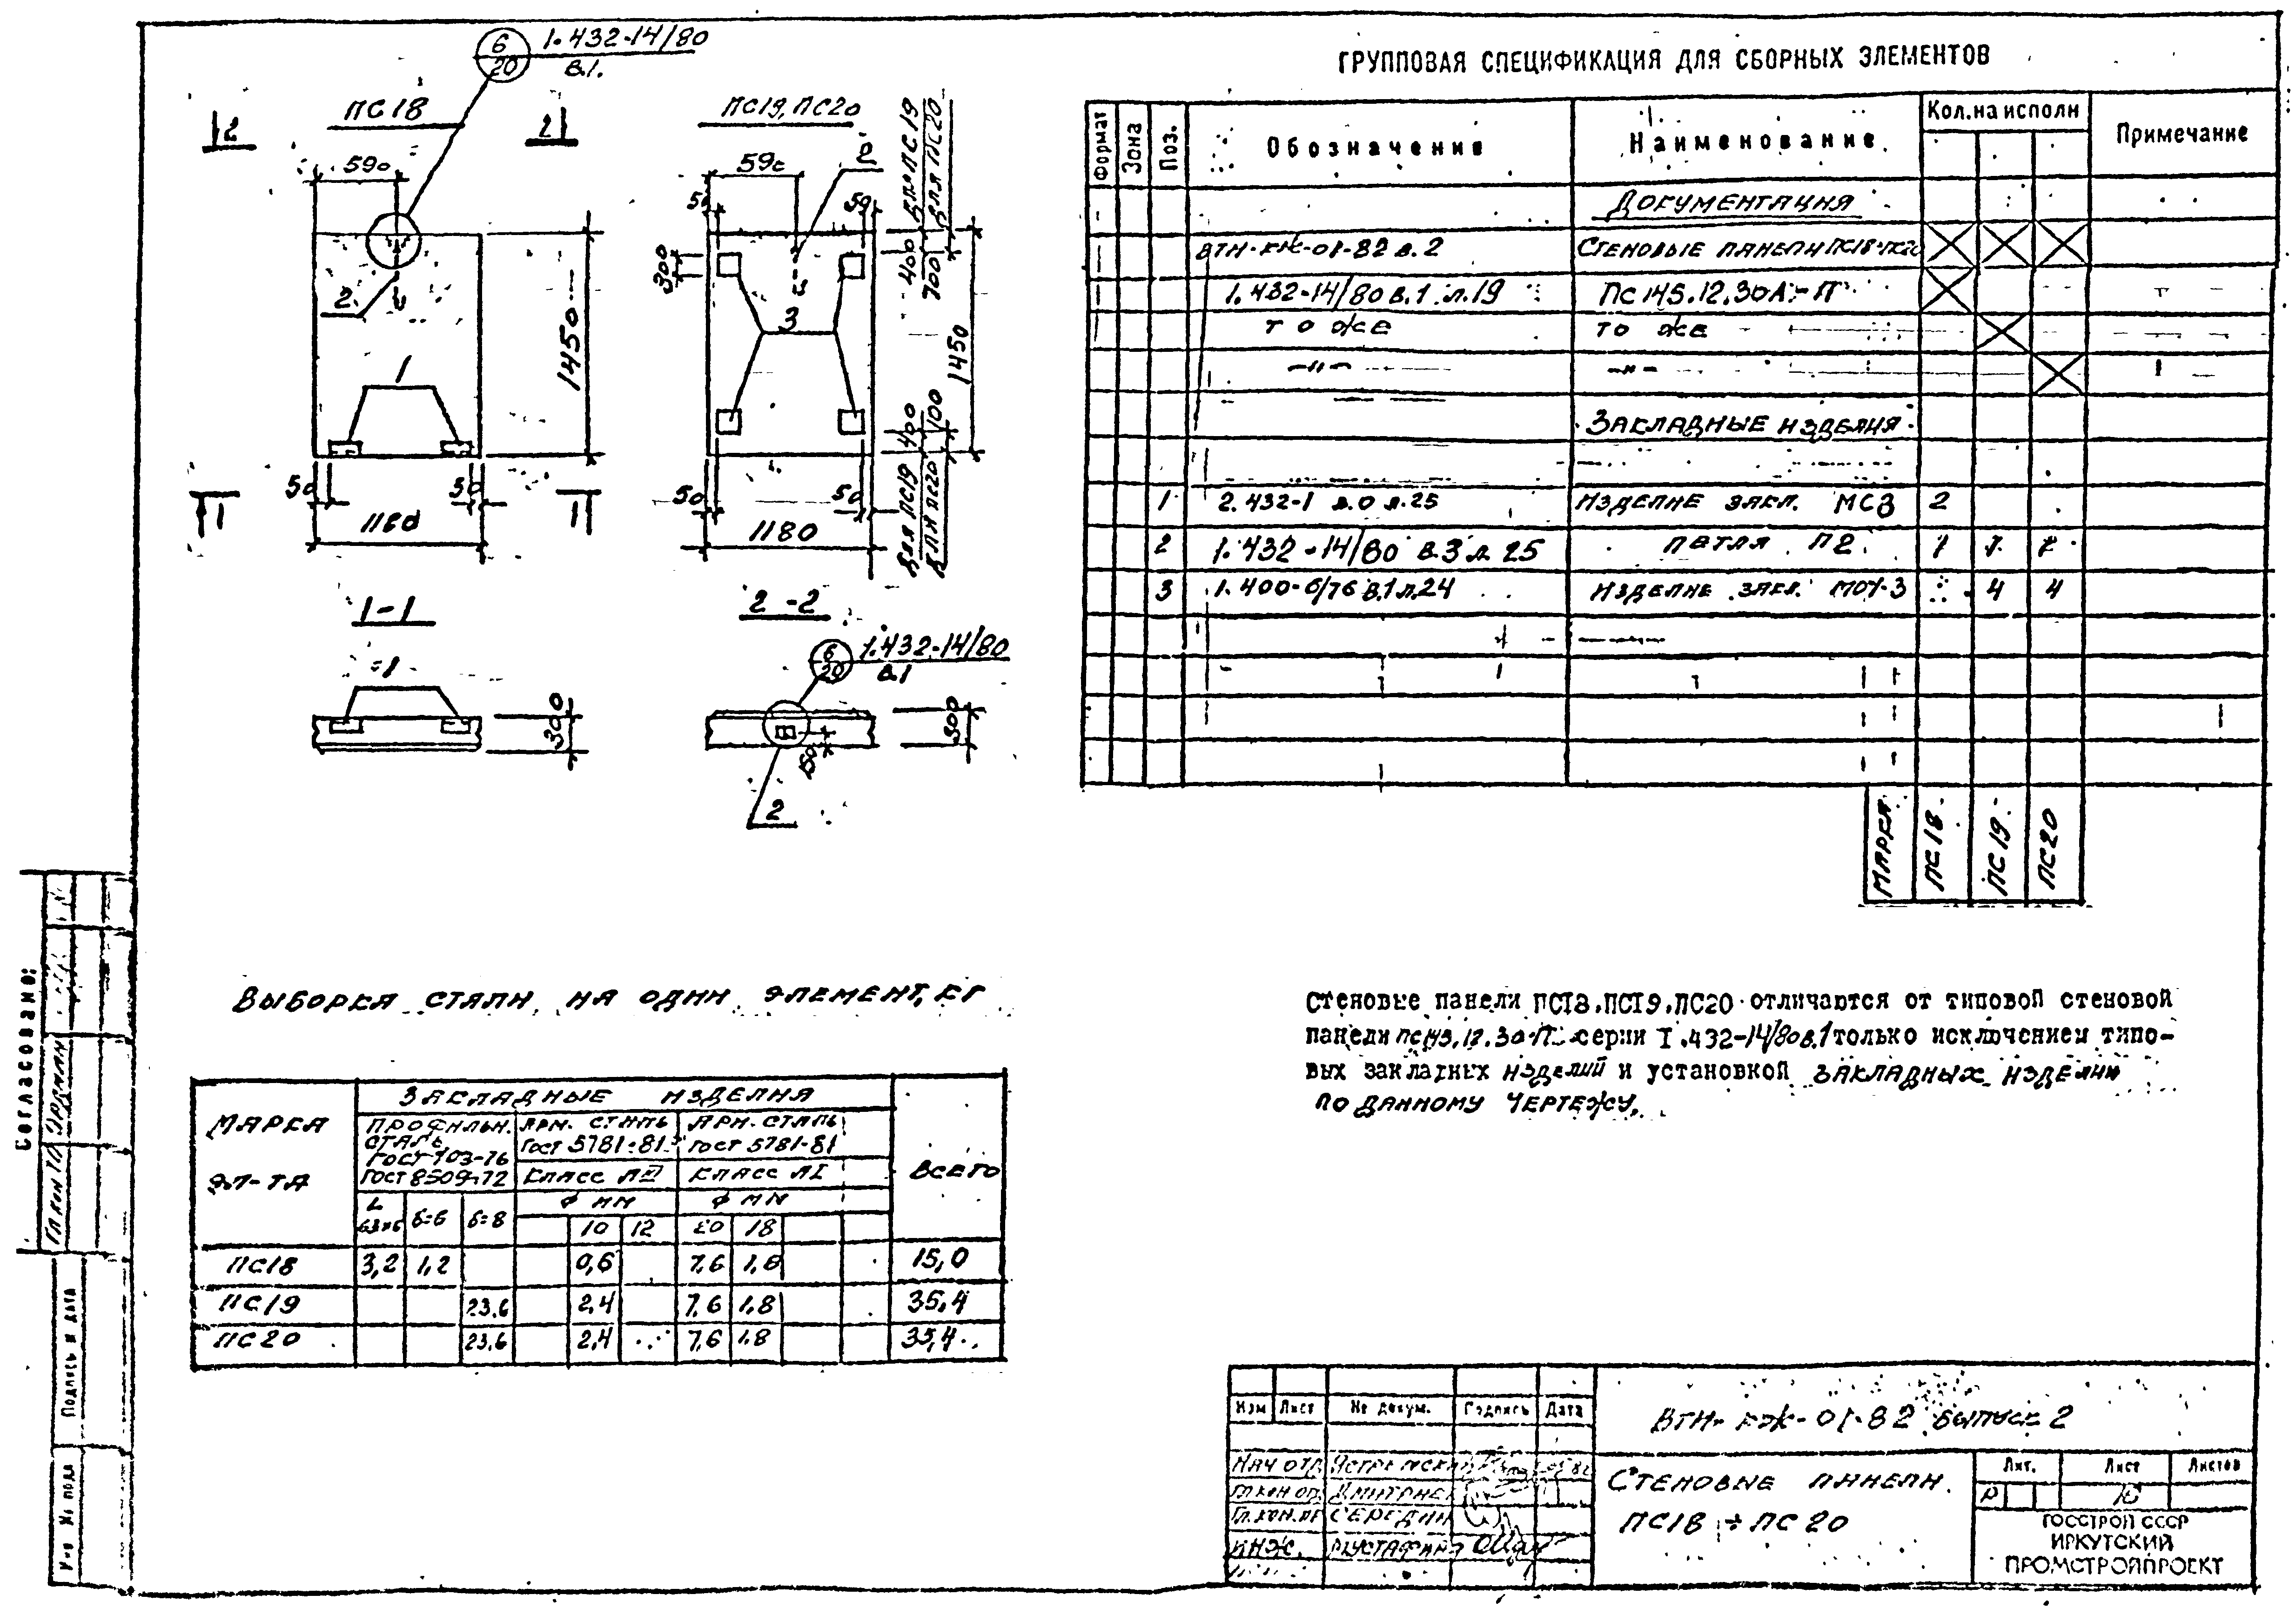 6
20
1.432-14/80
в.1.
ПС18
2
2
590
2
1
1450
50
50
1180
1
1
1-1
1
300
ПС19, ПС20
590
2
50
50
300
3
400
700
для ПС20
1450
400
100
для ПС19
для ПС20
50
50
1180
2-2
6
20
1.432-14/80
в.1
300
2
ГРУППОВАЯ СПЕЦИФИКАЦИЯ ДЛЯ СБОРНЫХ ЭЛЕМЕНТОВ
Формат Зона Поз. Обозначение Наименование Кол.на исполн Примечание
Документация
ВТН-КЖ-01-82 в.2 Стеновые панели ПС18÷ПС20
1.432-14/80 в.1 л.19 ПС145.12.30А-П
то же то же
-"- -"-
Закладные изделия
1 2.432-1 в.0 л.25 Изделие закл. МС3 2
2 1.432-14/80 в.3 л.25 петля П2 1 1 1
3 1.400-6/76 в.1 л.24 Изделие закл. 4 4
Марка ПС18 ПС19 ПС20
Выборка стали на один элемент, кг
Марка эл-та Закладные изделия Всего
Профильн. сталь Арм. сталь Арм. сталь
ГОСТ 103-76 ГОСТ 5781-81 ГОСТ 5781-81
ГОСТ 8509-72 Класс АIII Класс АI
L 63×6 δ=6 δ=8 Ф мм Ф мм
10 12 20 18
ПС18 3,2 1,2 0,6 7,6 1,8 15,0
ПС19 23,6 2,4 7,6 1,8 35,4
ПС20 23,6 2,4 7,6 1,8 35,4
Стеновые панели ПС18, ПС19, ПС20 отличаются от типовой стеновой
панели серии 1.432-14/80 в.1 только исключением типо-
вых закладных изделий и установкой закладных изделий
по данному чертежу.
Согласовано:
Подпись и дата
Изм Лист № докум. Подпись Дата
Нач отд
Гл.кон.
СЕРЕДИН
ИНЖ. Мустафина
ВТН-КЖ-01-82 выпуск 2
Стеновые панели
ПС18 ÷ ПС20
Лит. Лист Листов
Р
ГОССТРОЙ СССР
ИРКУТСКИЙ
ПРОМСТРОЙПРОЕКТ